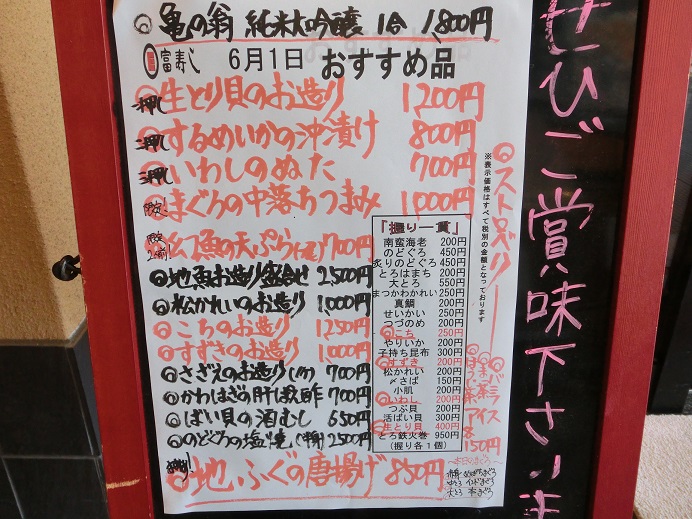 ◎亀の翁 純米大吟醸 1合 1,800円
富寿し 6月1日 おすすめ品
押し ◎生とり貝のお造り 1200円
押し ◎するめいかの沖漬け 800円
押し ◎いわしのぬた 700円
まぐろの中落ちつまみ 1,000円
幻魚の天ぷら 700円
◎地魚お造り盛合せ 2,500円
◎松かれいのお造り 1,000円
◎こちのお造り 1,250円
◎すずきのお造り 1,000円
◎さざえのお造り 700円
◎かわはぎの肝ポン酢 700円
◎ばい貝の酒むし 650円
◎のどぐろの塩焼 2,500円
◎地ふぐの唐揚げ 850円
「握り一貫」
南蛮海老 200円
のどぐろ 450円
炙りのどぐろ 450円
とろはまち 200円
大とろ 550円
まつかわかれい 250円
真鯛 200円
せいかい 250円
つづのめ 200円
◎こち 250円
やりいか 200円
子持ち昆布 300円
◎すずき 200円
松かれい 200円
〆さば 150円
小肌 200円
◎いわし 200円
つぶ貝 200円
活ばい貝 300円
◎生とり貝 400円
とろ鉄火巻 950円
(握り各1個)
※表示価格はすべて税別の金額となっております
◎ストロベリー
◎バニラアイス
◎抹茶
◎ほうじ茶
各150円
〜本日のまぐろ〜
赤身 めばちまぐろ
中とろ インドまぐろ
大とろ 本まぐろ
ぜひご賞味下さいま